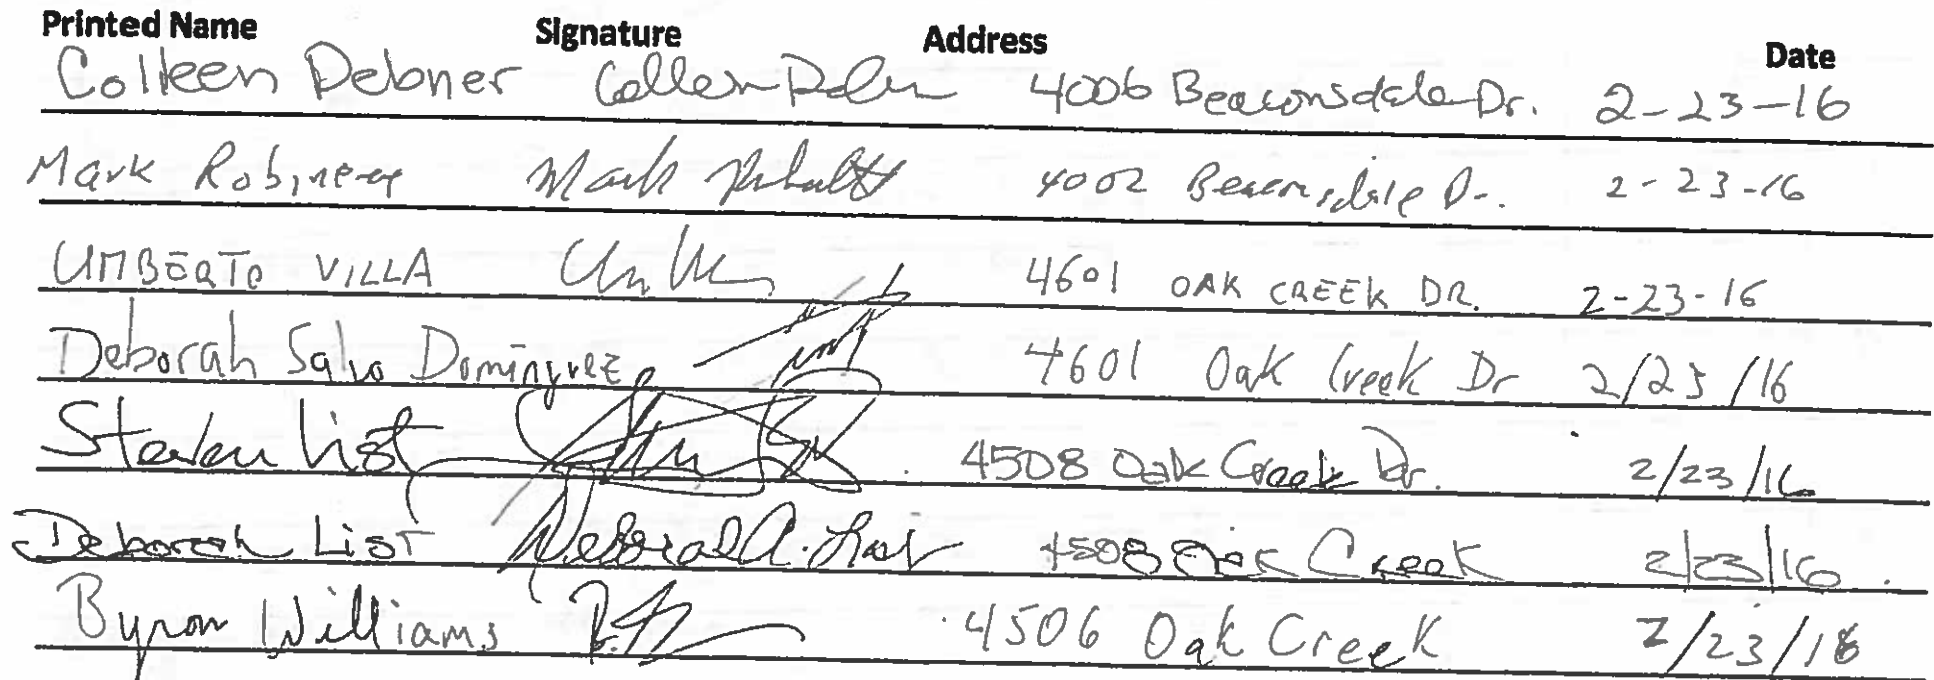 Printed Name Signature Address Date
Colleen Debner Colleen Debner 4006 Beaconsdale Dr. 2-23-16
Mark Mark 4002 Beaconsdale Dr. 2-23-16
UMBERTO VILLA 4601 OAK CREEK DR. 2-23-16
Deborah Salvo Domínguez 4601 Oak Creek Dr 2/23/16
Steven List 4508 Oak Creek Dr. 2/23/16
Deborah List Deborah A. List 4508 Oak Creek 2/23/16
Byron Williams 4506 Oak Creek 2/23/16